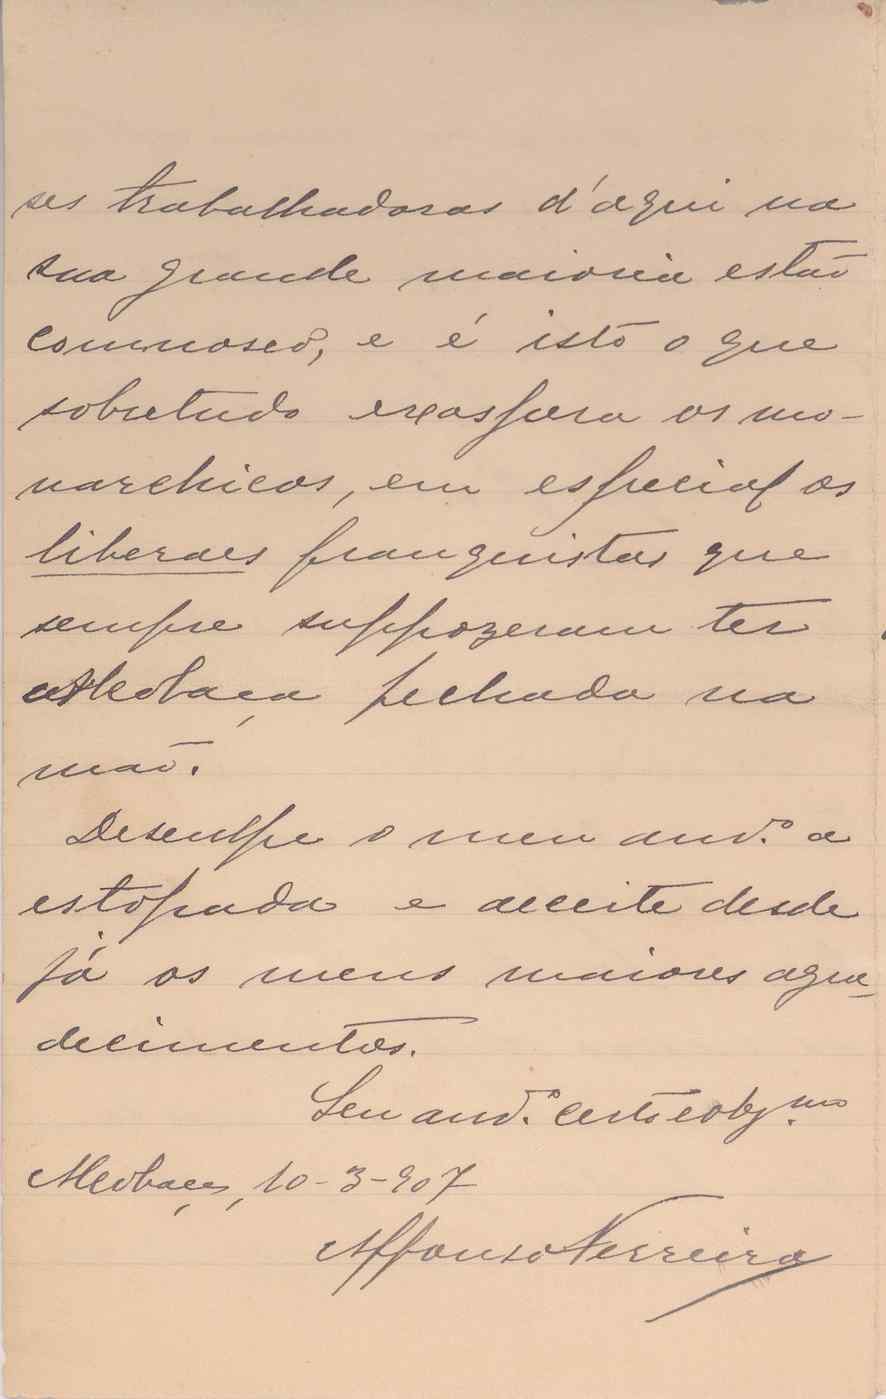 ses trabalhadoras d'aqui na
sua grande maioria estão
comnosco, e é isto o que
sobretudo exaspera os mo-
narchicos, em especial os
liberaes franquistas que
sempre suppozeram ter
Alcobaça fechada na
mão.
Desculpe o meu am.º a
estopada e acceite desde
já os meus maiores agra-
decimentos.
Seu am.º certo e obg.mo
Alcobaça, 10-3-907
Affonso Ferreira